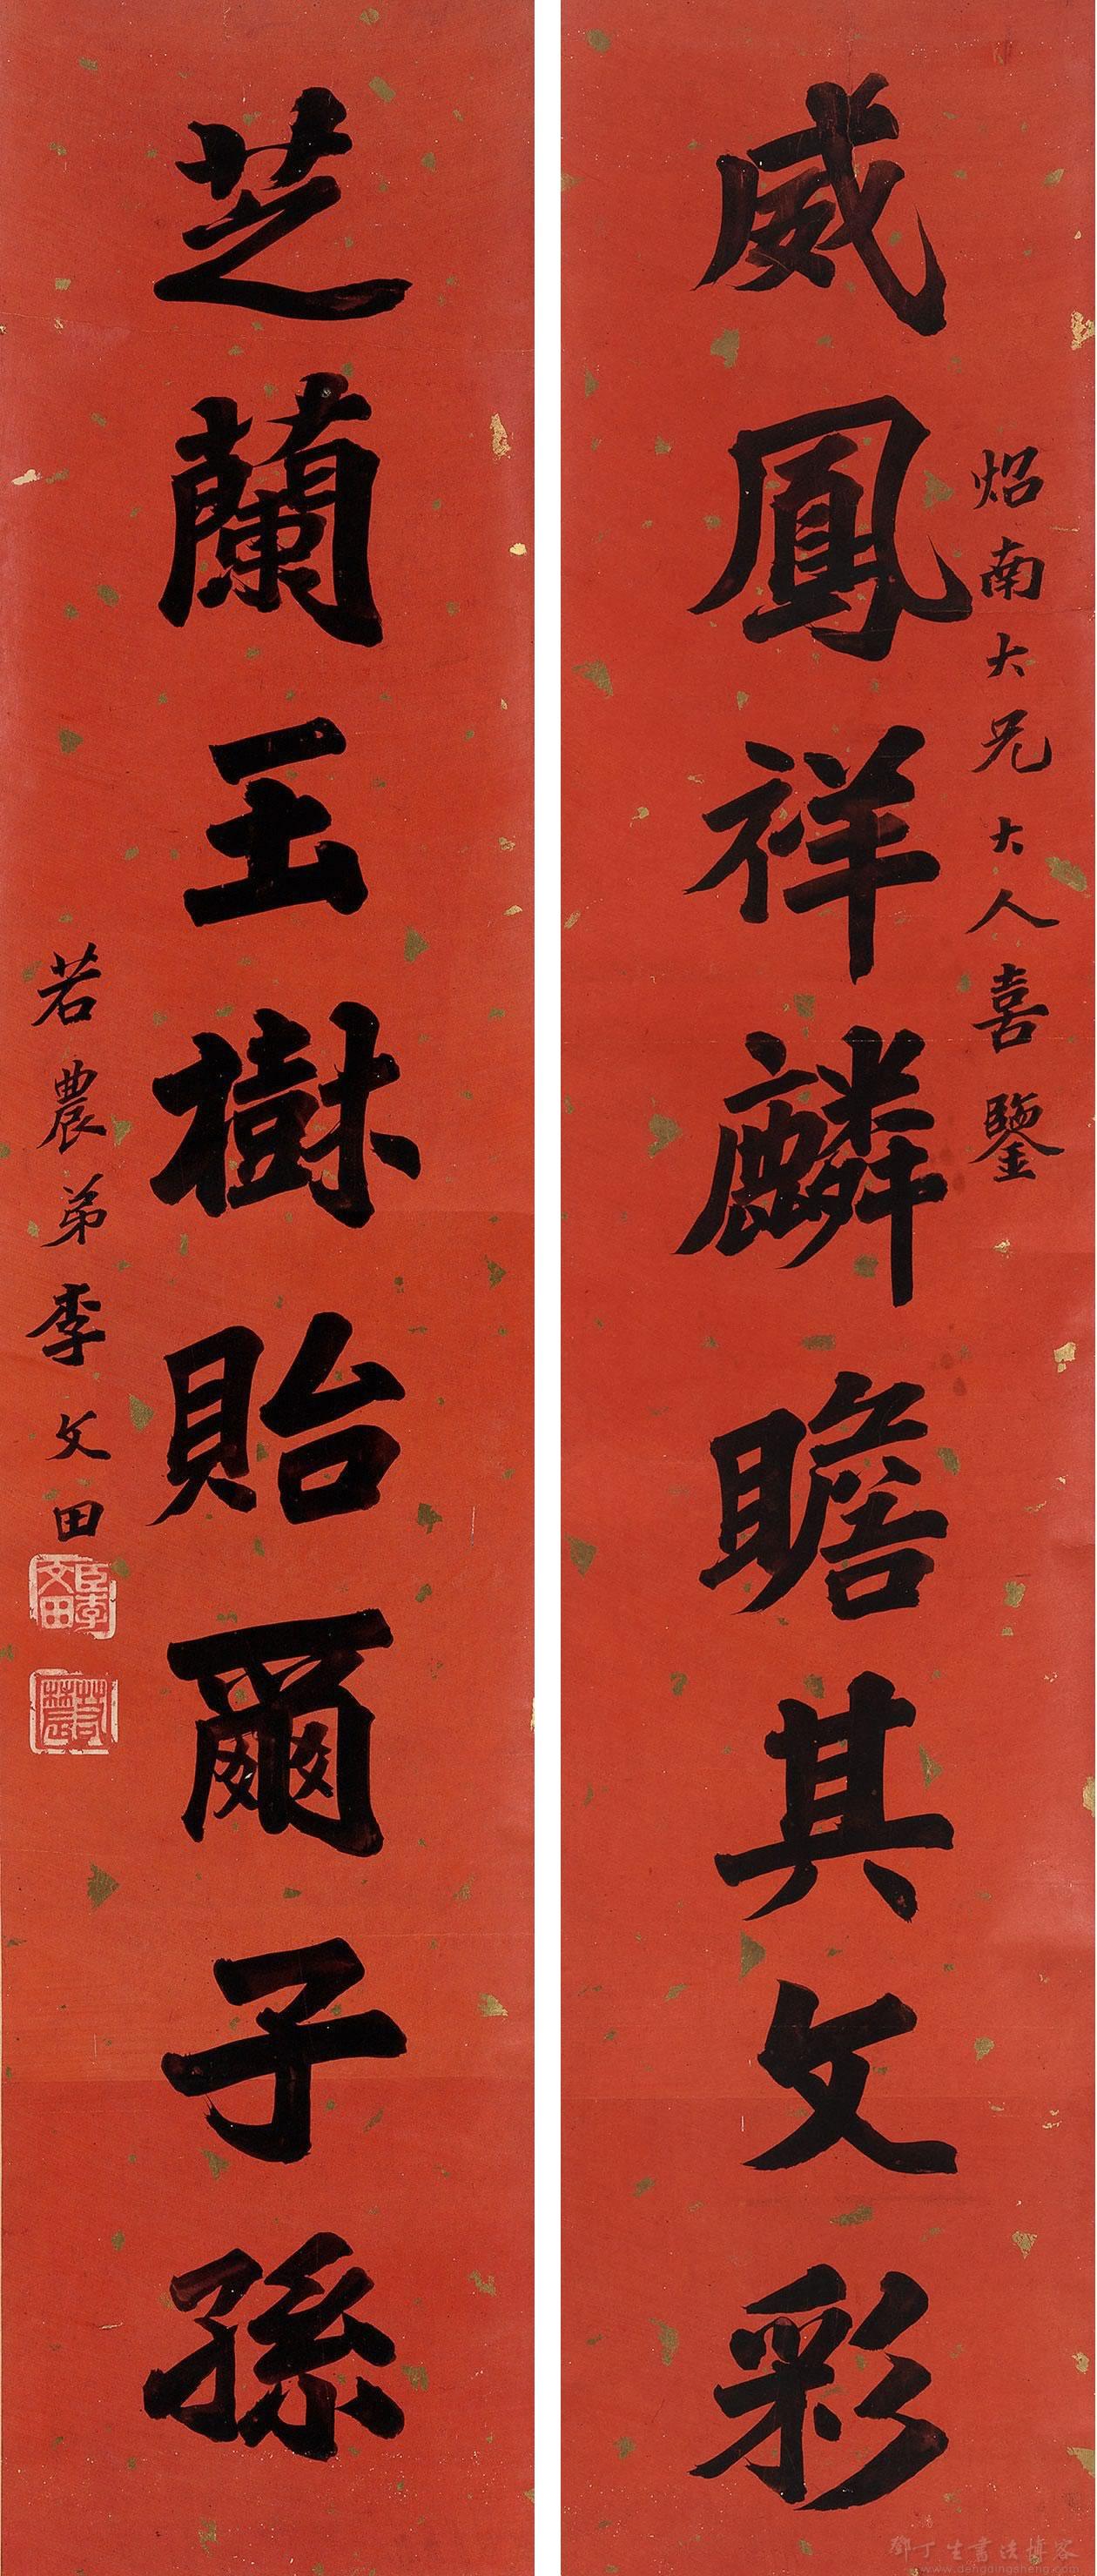 威鳳祥麟瞻其文彩
炤南大兄大人喜鑒
芝蘭玉樹貽爾子孫
若農弟李文田
臣李文田
若農
鄧丁生書法博客
www.dengdingsheng.com